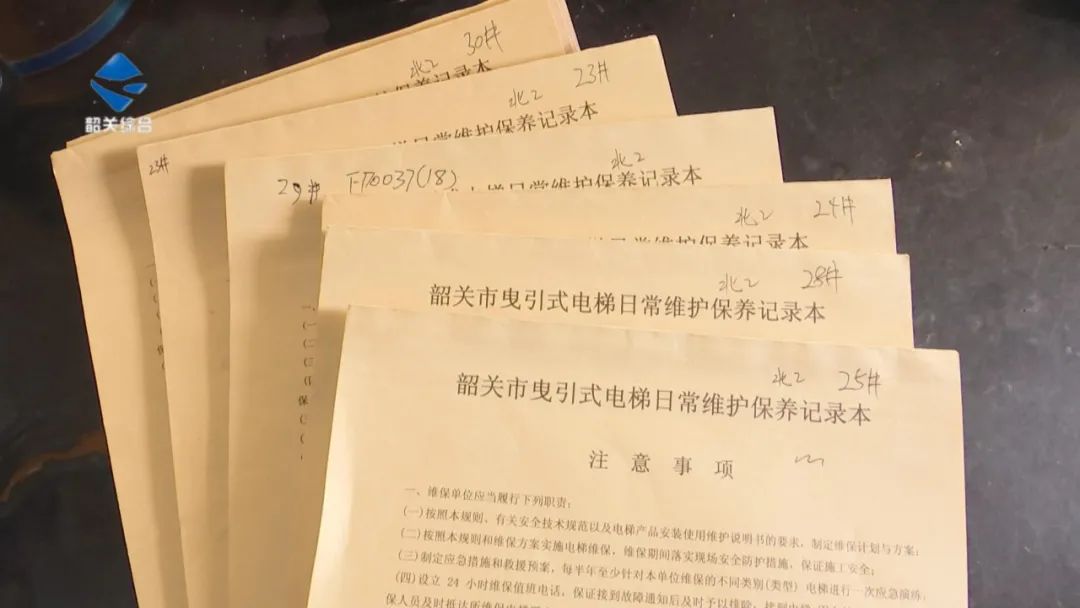 韶关综合
北2 30#
保养记录本
北2 23#
梯日常维护保养记录本
23#
北2
29# FT60037(18)
梯日常维护保养记录本
北2 24#
梯日常维护保养记录本
北2 28#
韶关市曳引式电梯日常维护保养记录本
北2 25#
韶关市曳引式电梯日常维护保养记录本
注意事项
一、维保单位应当履行下列职责:
(一)按照本规则、有关安全技术规范以及电梯产品安装使用维护说明书的要求,制定维保计划与方案;
(二)按照本规则和维保方案实施电梯维保,维保期间落实现场安全防护措施,保证施工安全;
(三)制定应急措施和救援预案,每半年至少针对本单位维保的不同类别(类型)电梯进行一次应急演练;
(四)设立 24 小时维保值班电话,保证接到故障通知后及时予以排除,接到电梯
保人员及时抵达所维保电梯